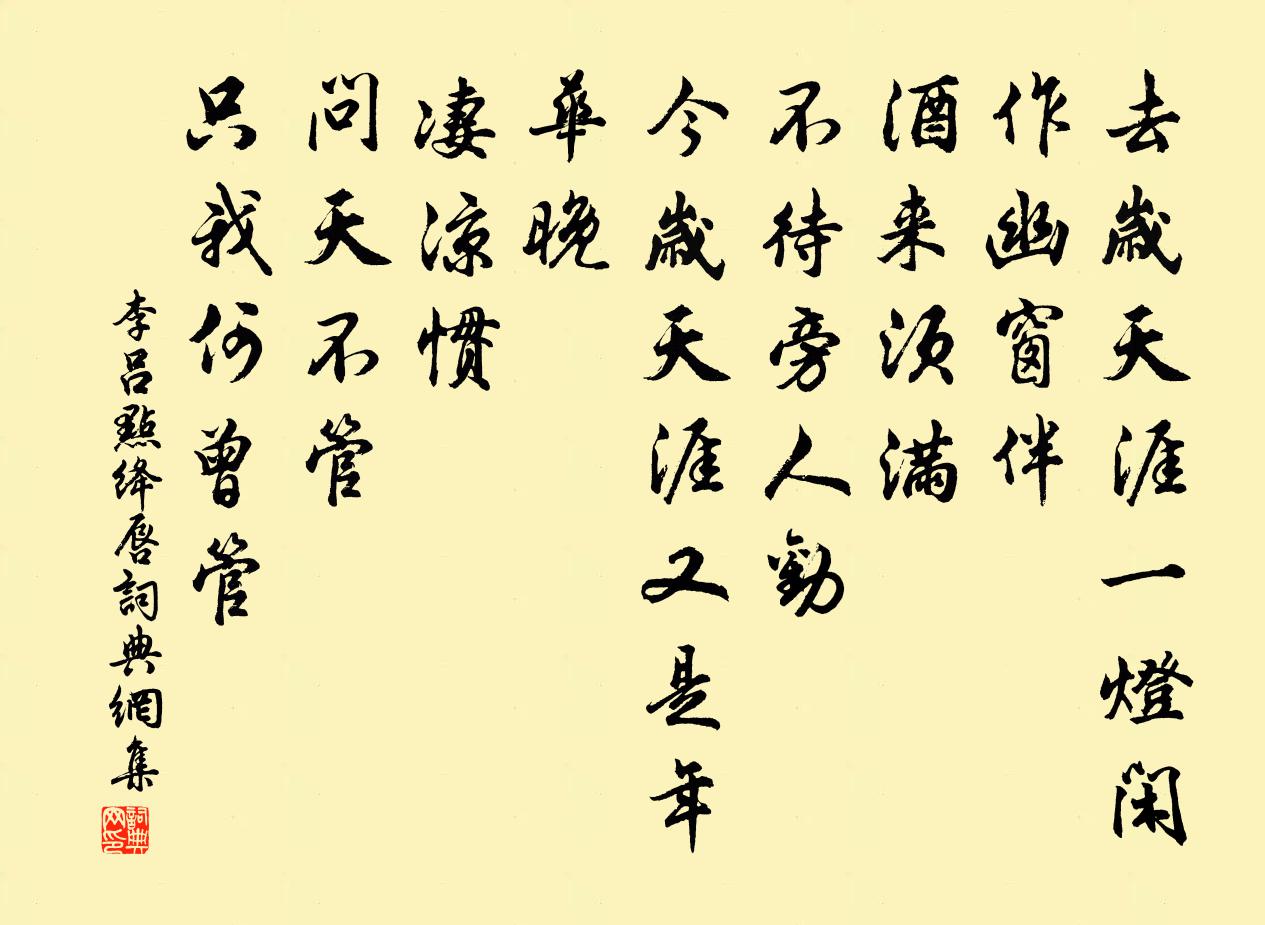 去歲天涯一燈閑
作幽窗伴
酒来須滿
不待旁人勸
今歲天涯又是年
華晚
淒涼慣
問天不管
只我何曾管
李呂點絳唇詞典網集
詞典网印